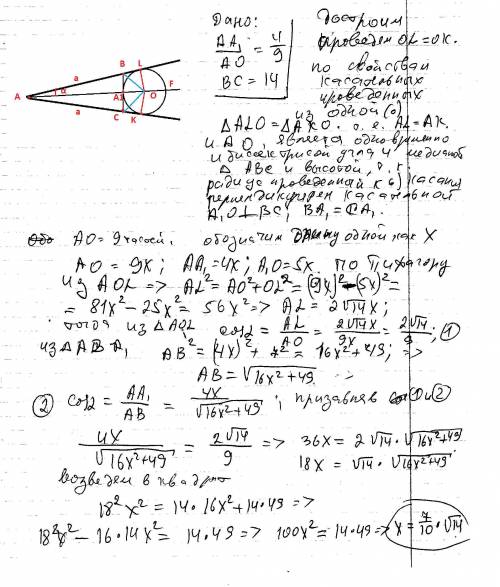 Дано:
AA₁/AO = 4/9
BC = 14
Достроим
проведем OL=OK.
по свойствам
касательных
проведенных
из одной (·)
△ALO=△AKO. т.е. AL=AK.
и AO является одновременно
и биссектрисой угла и медианой
△ ABC и высотой, т.к.
радиус проведенный к касат.
перпендикулярен касательной
A₁O⊥BC; BA₁=CA₁.
AO=9частей, обозначим длину одной как X
AO=9X; AA₁=4X; A₁O=5X. по Пифагору
Из AOL => AL²=AO²+OL²=(9X)²-(5X)²=
=81X²-25X²=56X² => AL=2√14X;
тогда из △AOL cosα=AL/AO=2√14X/9X=2√14/9; ①
из △ABA₁ AB²=(4X)²+7²=16X²+49; =>
AB=√16X²+49
② cosα=AA₁/AB=4X/√16X²+49; приравняв ① и ②
4X/√16X²+49=2√14/9 => 36X=2√14·√16X²+49
18X=√14·√16X²+49.
возведем в квадрат
18²X²=14·16X²+14·49 =>
18²X²-16·14X²=14·49 => 100X²=14·49 => X=7/10·√14
A
a
a
α
B
L
A1
O
F
C
K